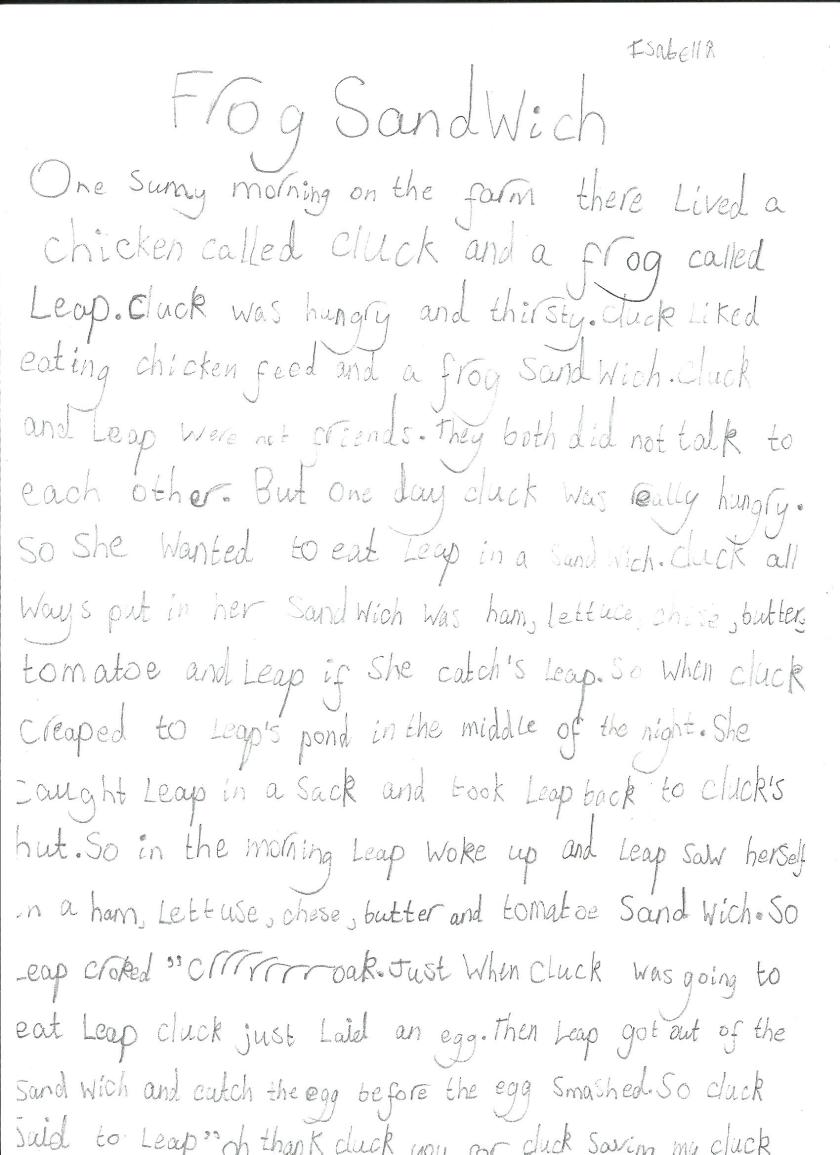 Isabella
Frog Sandwich
One sunny morning on the farm there Lived a
chicken called cluck and a frog called
Leap. Cluck was hungry and thirsty. Cluck Liked
eating chicken feed and a frog Sandwich. Cluck
and Leap were not friends. They both did not talk to
each other. But one day cluck was really hungry.
So She Wanted to eat Leap in a sandwich. Cluck all
Ways put in her Sandwich was ham, lettuce, chise, butter,
tomatoe and Leap if She catch's Leap. So when cluck
Creaped to Leap's pond in the middle of the night. She
caught Leap in a Sack and took Leap back to Cluck's
hut. So in the morning Leap woke up and Leap saw herself
in a ham, Lettuse, chese, butter and tomatoe Sandwich. So
Leap croked "crrrrrrrroak. Just When cluck was going to
eat Leap cluck just Laid an egg. Then Leap got out of the
Sandwich and catch the egg before the egg Smashed. So cluck
Said to Leap "oh thank cluck you cluck Saving my cluck